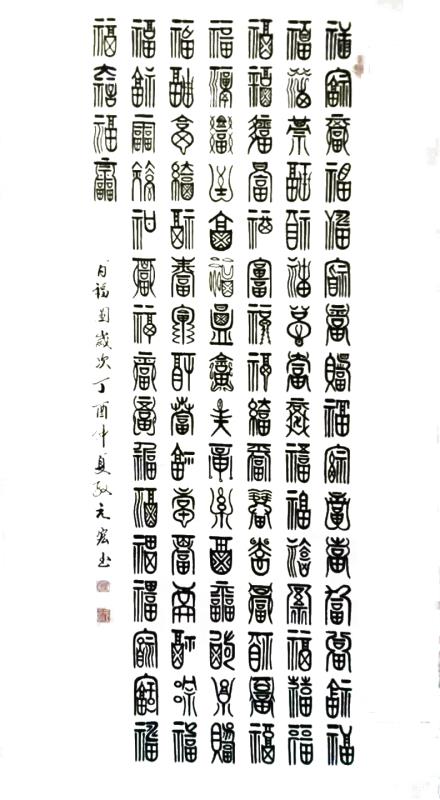 福福福福福福福福福福福福福福福福
福福福福福福福福福福福福福福福福
福福福福福福福福福福福福福福福福
福福福福福福福福福福福福福福福福
福福福福福福福福福福福福福福福福
福福福福福福福福福福福福福福福福
福福福福
百福圖歲次丁酉仲夏元宏书